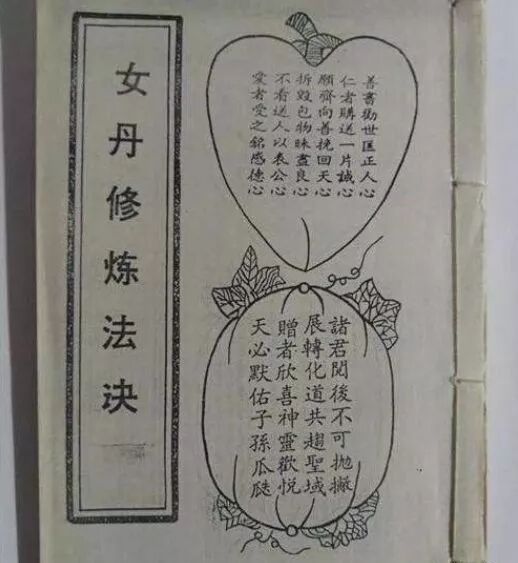 女丹修炼法决
善書勸世匡正人心
仁者購送一片誠心
願齊向善挽回天心
拆毀包物昧盡良心
不看送人以表公心
愛者受之銘感德心
諸君閱後不可拋撇
展轉化道共趨聖域
贈者欣喜神靈歡悅
天必默佑子孫瓜瓞